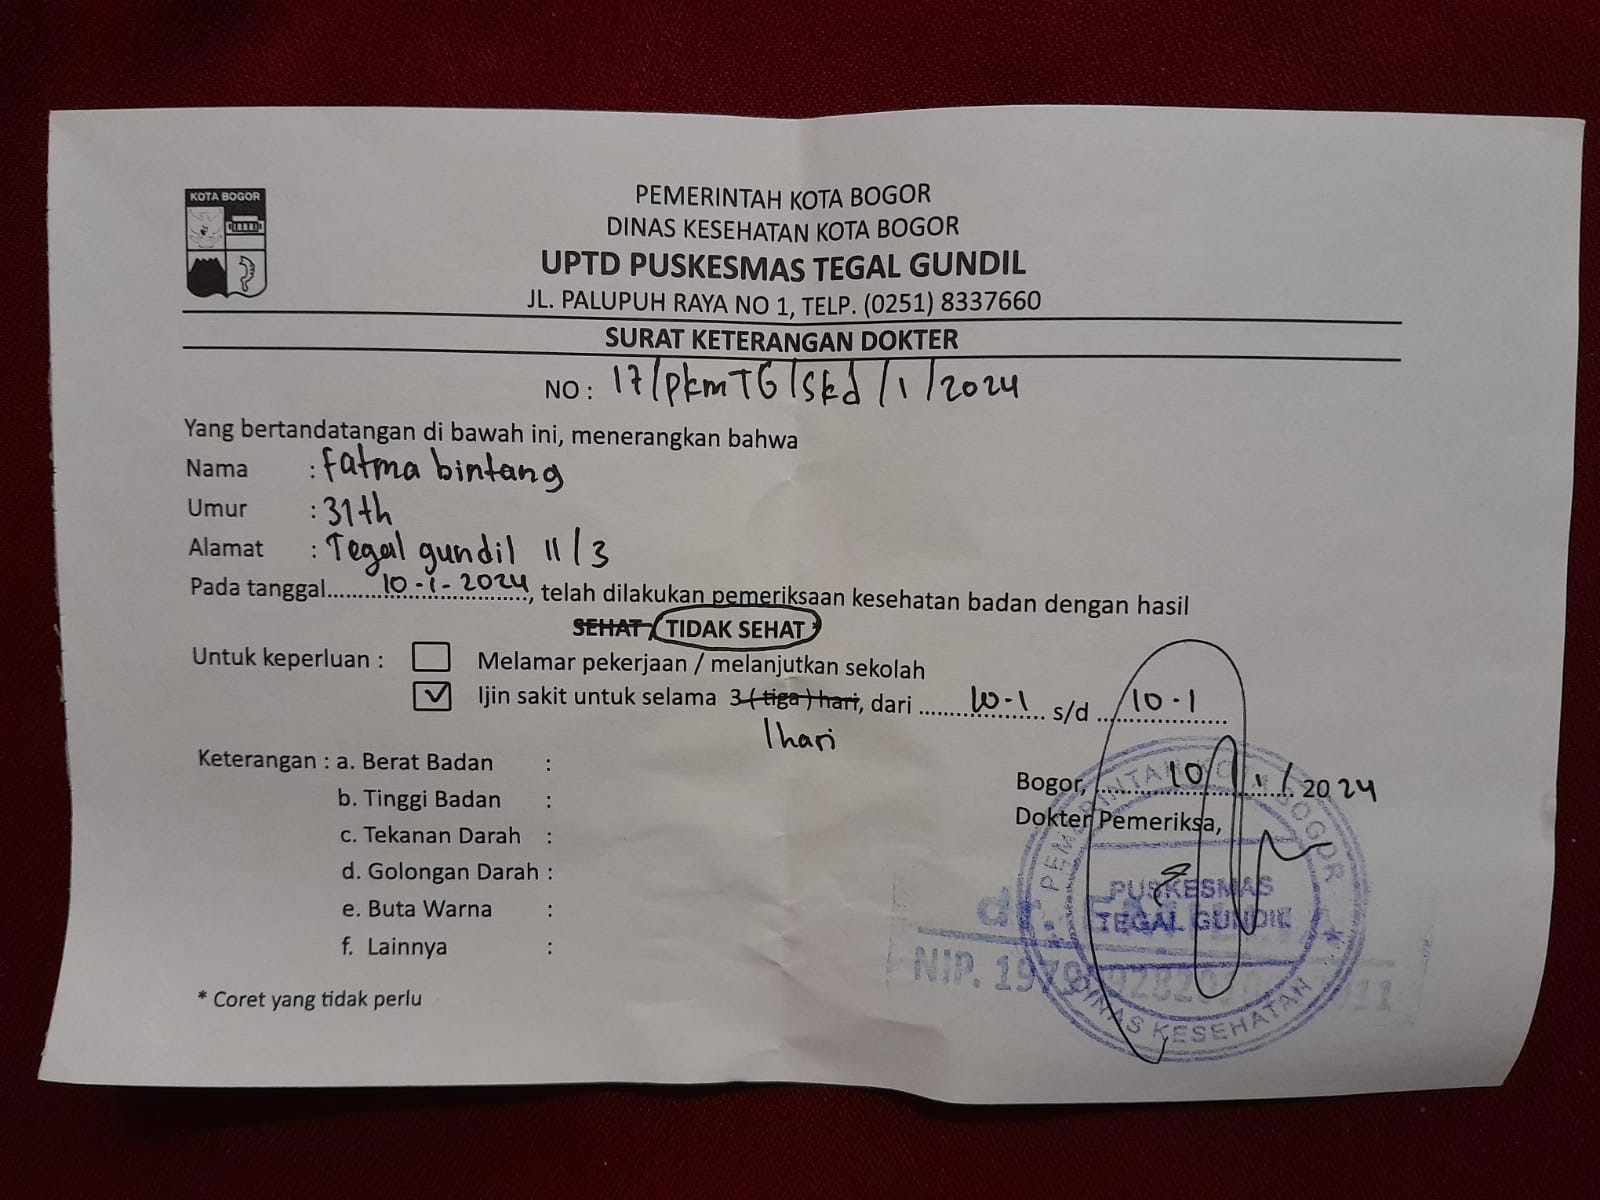 KOTA BOGOR
PEMERINTAH KOTA BOGOR
DINAS KESEHATAN KOTA BOGOR
UPTD PUSKESMAS TEGAL GUNDIL
JL. PALUPUH RAYA NO 1, TELP. (0251) 8337660
SURAT KETERANGAN DOKTER
NO : 17/pkmTG/skd/1/2024
Yang bertandatangan di bawah ini, menerangkan bahwa
Nama : fatma bintang
Umur : 31th
Alamat : Tegal gundil 11/3
Pada tanggal..........10-1-2024.........., telah dilakukan pemeriksaan kesehatan badan dengan hasil
SEHAT / TIDAK SEHAT *
Untuk keperluan : Melamar pekerjaan / melanjutkan sekolah
Ijin sakit untuk selama 3 ( tiga ) hari, dari ........10-1........ s/d ........10-1........
1hari
Keterangan : a. Berat Badan :
b. Tinggi Badan :
c. Tekanan Darah :
d. Golongan Darah :
e. Buta Warna :
f. Lainnya :
* Coret yang tidak perlu
Bogor, ..........10/1/.......... 2024
Dokter Pemeriksa,
PEMERINTAH KOTA BOGOR
PUSKESMAS
TEGAL GUNDIL
DINAS KESEHATAN
dr.
NIP.